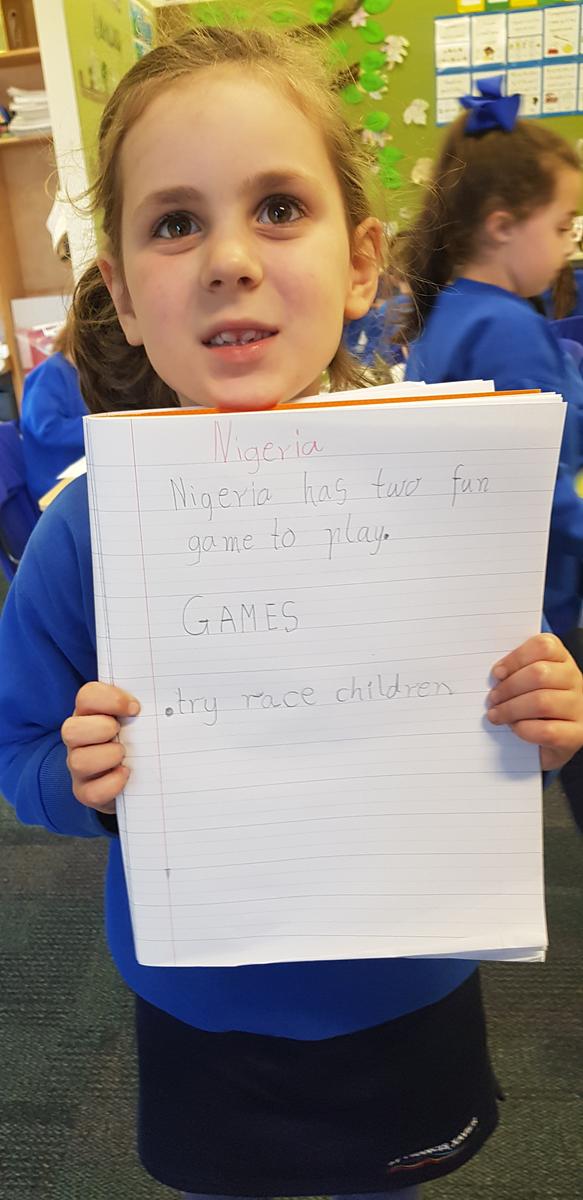 Nigeria
Nigeria has two fun
game to play.
GAMES
.try race children